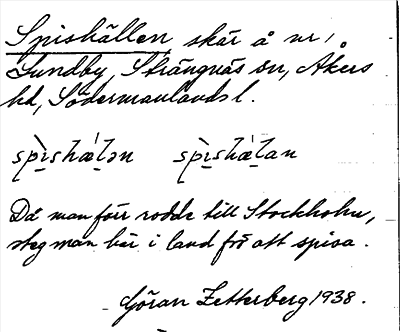 Spishällen, skär å nr 1
Sundby, Strängnäs sn, Åkers
hd, Södermanlands l.
spìshæ̀lən spìshæ̀lan
Då man förr rodde till Stockholm,
steg man här i land frö att spisa.
Göran Zetterberg 1938.